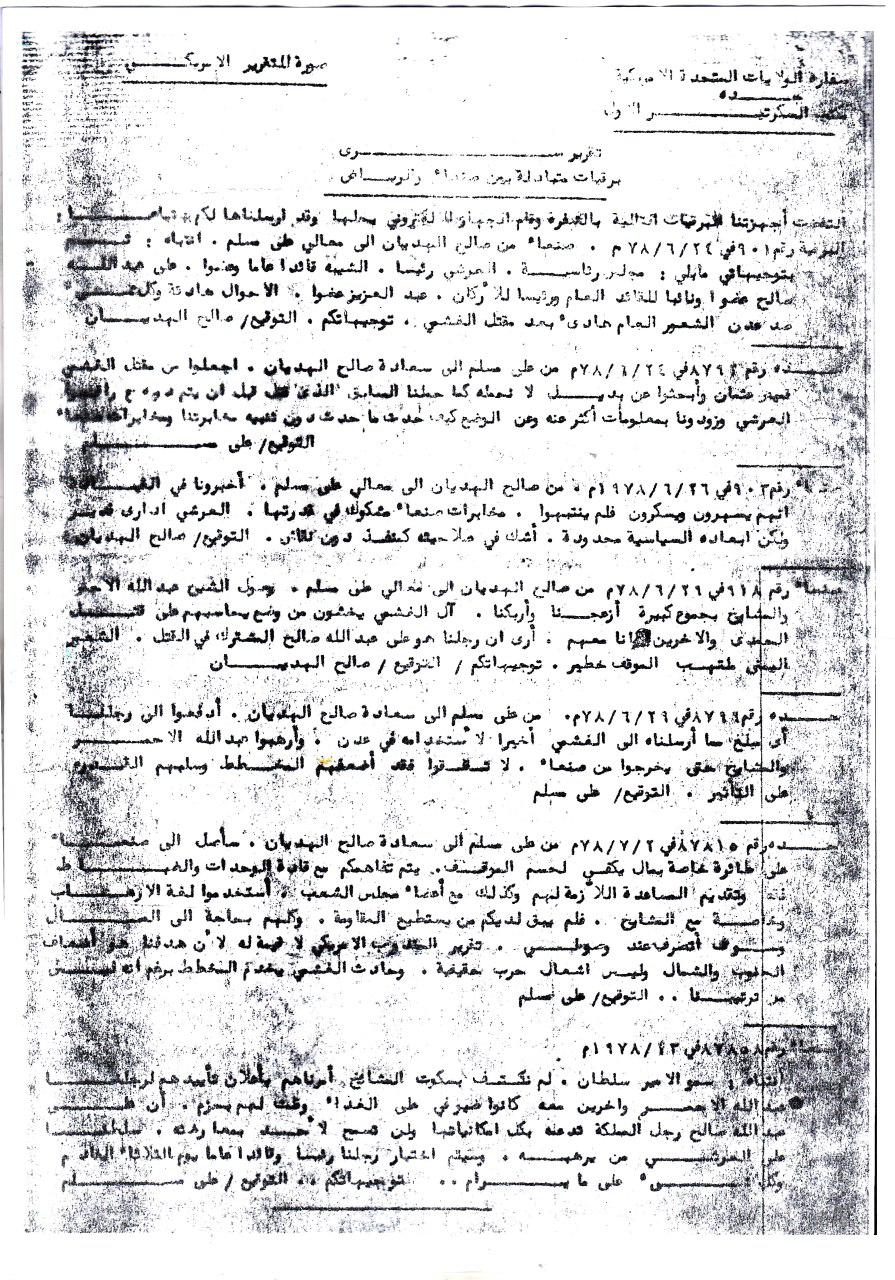 صورة التقرير الامريكي
سفارة الولايات المتحدة الامريكية
جده
مكتب السكرتير الاول
تقرير سرى
برقيات متبادلة بين صنعاء والرياض
التقطت أجهزتنا البرقيات التالية بالشفرة وقام الجهاز الالكتروني بحلها وقد ارسلناها لكم بنصها :
البرقية رقم ٩٠١ في ٧٨/٦/٢٤م . صنعاء من صالح الهديان الى معالي على مسلم . انتباه :
بتوجيهاتي مايلي : مجلس رئاسة . العرشي رئيسا . الشيبة قائدا عاما وعضوا . على عبدالله
صالح عضوا ونائبا للقائد العام ورئيسا للأركان . عبد العزيز عضوا . الاحوال هادئة وكل شيء
ضد عدن الشعور العام هادىء بعد مقتل الغشمي . توجيهاتكم . التوقيع/ صالح الهديان
جده رقم في ٧٨/٦/٢٤م من على مسلم الى سعادة صالح الهديان . اجعلوا من مقتل الغشمي
قميص عثمان وأبحثوا عن بديل لا نجعله كما جعلنا السابق الذى قتل قبل ان يتم
العرشي وزودونا بمعلومات أكثر عنه وعن الوضع كيف حدث ما حدث دون تنبيه مخابرتنا ومخابرات
التوقيع/ على مسلم
صنعاء رقم ٩٠٣ في ١٩٧٨/٦/٢٦م . من صالح الهديان الى معالي على مسلم . أخبرونا في القيادة
انهم يسهرون ويسكرون فلم ينتبهوا . مخابرات صنعاء مشكوك في قدرتها . العرشي ادارى قدير
ولكن ابعاده السياسية محدودة . أشك في صلاحيته كمنفذ دون نقاش . التوقيع/ صالح الهديان
صنعاء رقم ٦١٨ في ٧٨/٦/٢٦م من صالح الهديان الى معالي على مسلم . وصول الشيخ عبدالله الاحمر
والمشايخ بجموع كبيرة أزعجنا وأربكنا . آل الغشمي يخشون من وضع يحاسبهم على قتل
الحمدى والاخرين وانا معهم . أرى ان رجلنا هو على عبدالله صالح المشترك في القتل . الشعور
اليمني ملتهب الموقف خطير . توجيهاتكم / التوقيع / صالح الهديان
جده رقم في ٧٨/٦/٢٩م . من على مسلم الى سعادة صالح الهديان . أدفعوا الى رجلنا
أى مبلغ مما أرسلناه الى الغشمي أخيرا لاستخدامه في عدن . وأرهبوا عبدالله الاحمر
والمشايخ حتى يخرجوا من صنعاء . لا تقلقوا فقد أضعفهم المخطط وسلبهم القدرة
على التأثير . التوقيع/ على مسلم
جده رقم ٨٧٨١٥ في ٧٨/٧/٢م من على مسلم الى سعادة صالح الهديان . سأصل الى صنعاء
على طائرة خاصة بمال يكفي لحسم الموقف . يتم تفاهمكم مع قادة الوحدات والضباط
وتقديم المساعدة اللازمة لهم وكذلك مع أعضاء مجلس الشعب . أستخدموا لغة الارهاب
وخاصة مع المشايخ . فلم يبق لديكم من يستطيع المقاومة . وكلهم بحاجة الى المال
وسوف أتصرف عند وصولي . تقرير المندوب الامريكي لا قيمة له لأن هدفنا هو أضعاف
الجنوب والشمال وليس اشعال حرب حقيقية . وحادث الغشمي يخدم المخطط برغم أنه ليس
من ترتيبنا .. التوقيع/ على مسلم
صنعاء رقم ٨٧٨٥٨ في ١٩٧٨/ م
أنتباه : سمو الامير سلطان . لم نكتف بسكوت المشايخ أمرناهم بأعلان تأييدهم لرجلنا
عبدالله الاحمر واخرين معه كانوا ضيوفي على الغداء وقلت لهم بحزم . أن على
عبدالله صالح رجل المملكة تدعمه بكل امكانياتها ولن تسمح لأحد بمعارضته . سلطنا
على العرشي من يرهبه . وسيتم اختيار رجلنا رئيسا وقائدا عاما يوم الثلاثاء القادم
وكل شيء على ما يرام .. توجيهاتكم .. التوقيع / على مسلم